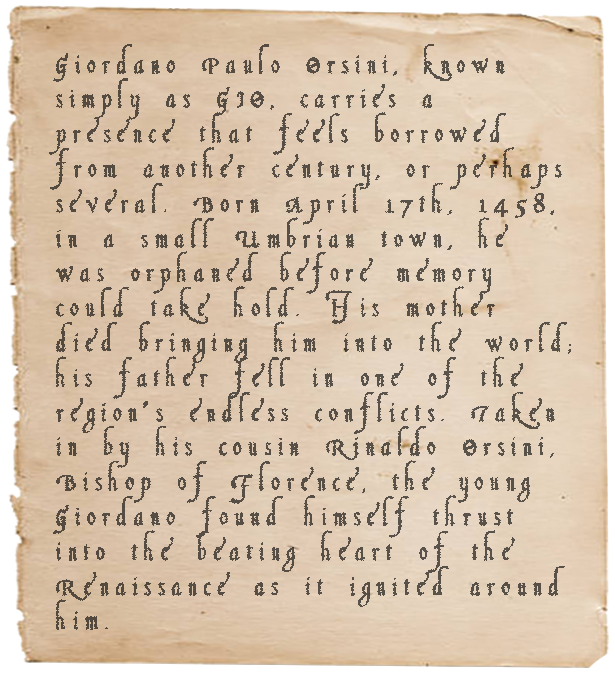 Giordano Paulo Orsini, known
simply as GIO, carries a
presence that feels borrowed
from another century, or perhaps
several. Born April 17th, 1458,
in a small Umbrian town, he
was orphaned before memory
could take hold. His mother
died bringing him into the world;
his father fell in one of the
region's endless conflicts. Taken
in by his cousin Rinaldo Orsini,
Bishop of Florence, the young
Giordano found himself thrust
into the beating heart of the
Renaissance as it ignited around
him.